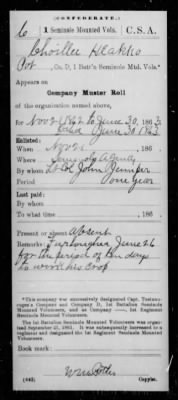 (CONFEDERATE.)
6 | 1 Seminole Mounted Vols. | C.S.A.
Choillee Heakko
Pvt, Co. D, 1 Batt'n Seminole Mtd. Vols.*
Appears on
Company Muster Roll
of the organization named above,
for Nov 21 1862 to June 30, 1863.
dated June 30 1863
Enlisted:
When Nov 21, 186
Where Seminole Agency
By whom Lt Col John Jumper
Period One year
Last paid:
By whom
To what time , 186 .
Present or absent Absent
Remarks: Furloughed June 26
for the period of ten days
to work his crop
*This company was successively designated Capt. Tustenuc-
kogee's Company and Company D, 1st Battalion Seminole
Mounted Volunteers, and as Company —, 1st Regiment
Seminole Mounted Volunteers.
The 1st Battalion Seminole Mounted Volunteers was
organized September 21, 1861. It was subsequently increased to a
regiment and designated the 1st Regiment Seminole Mounted
Volunteers.
Book mark:
(642)
Copyist.